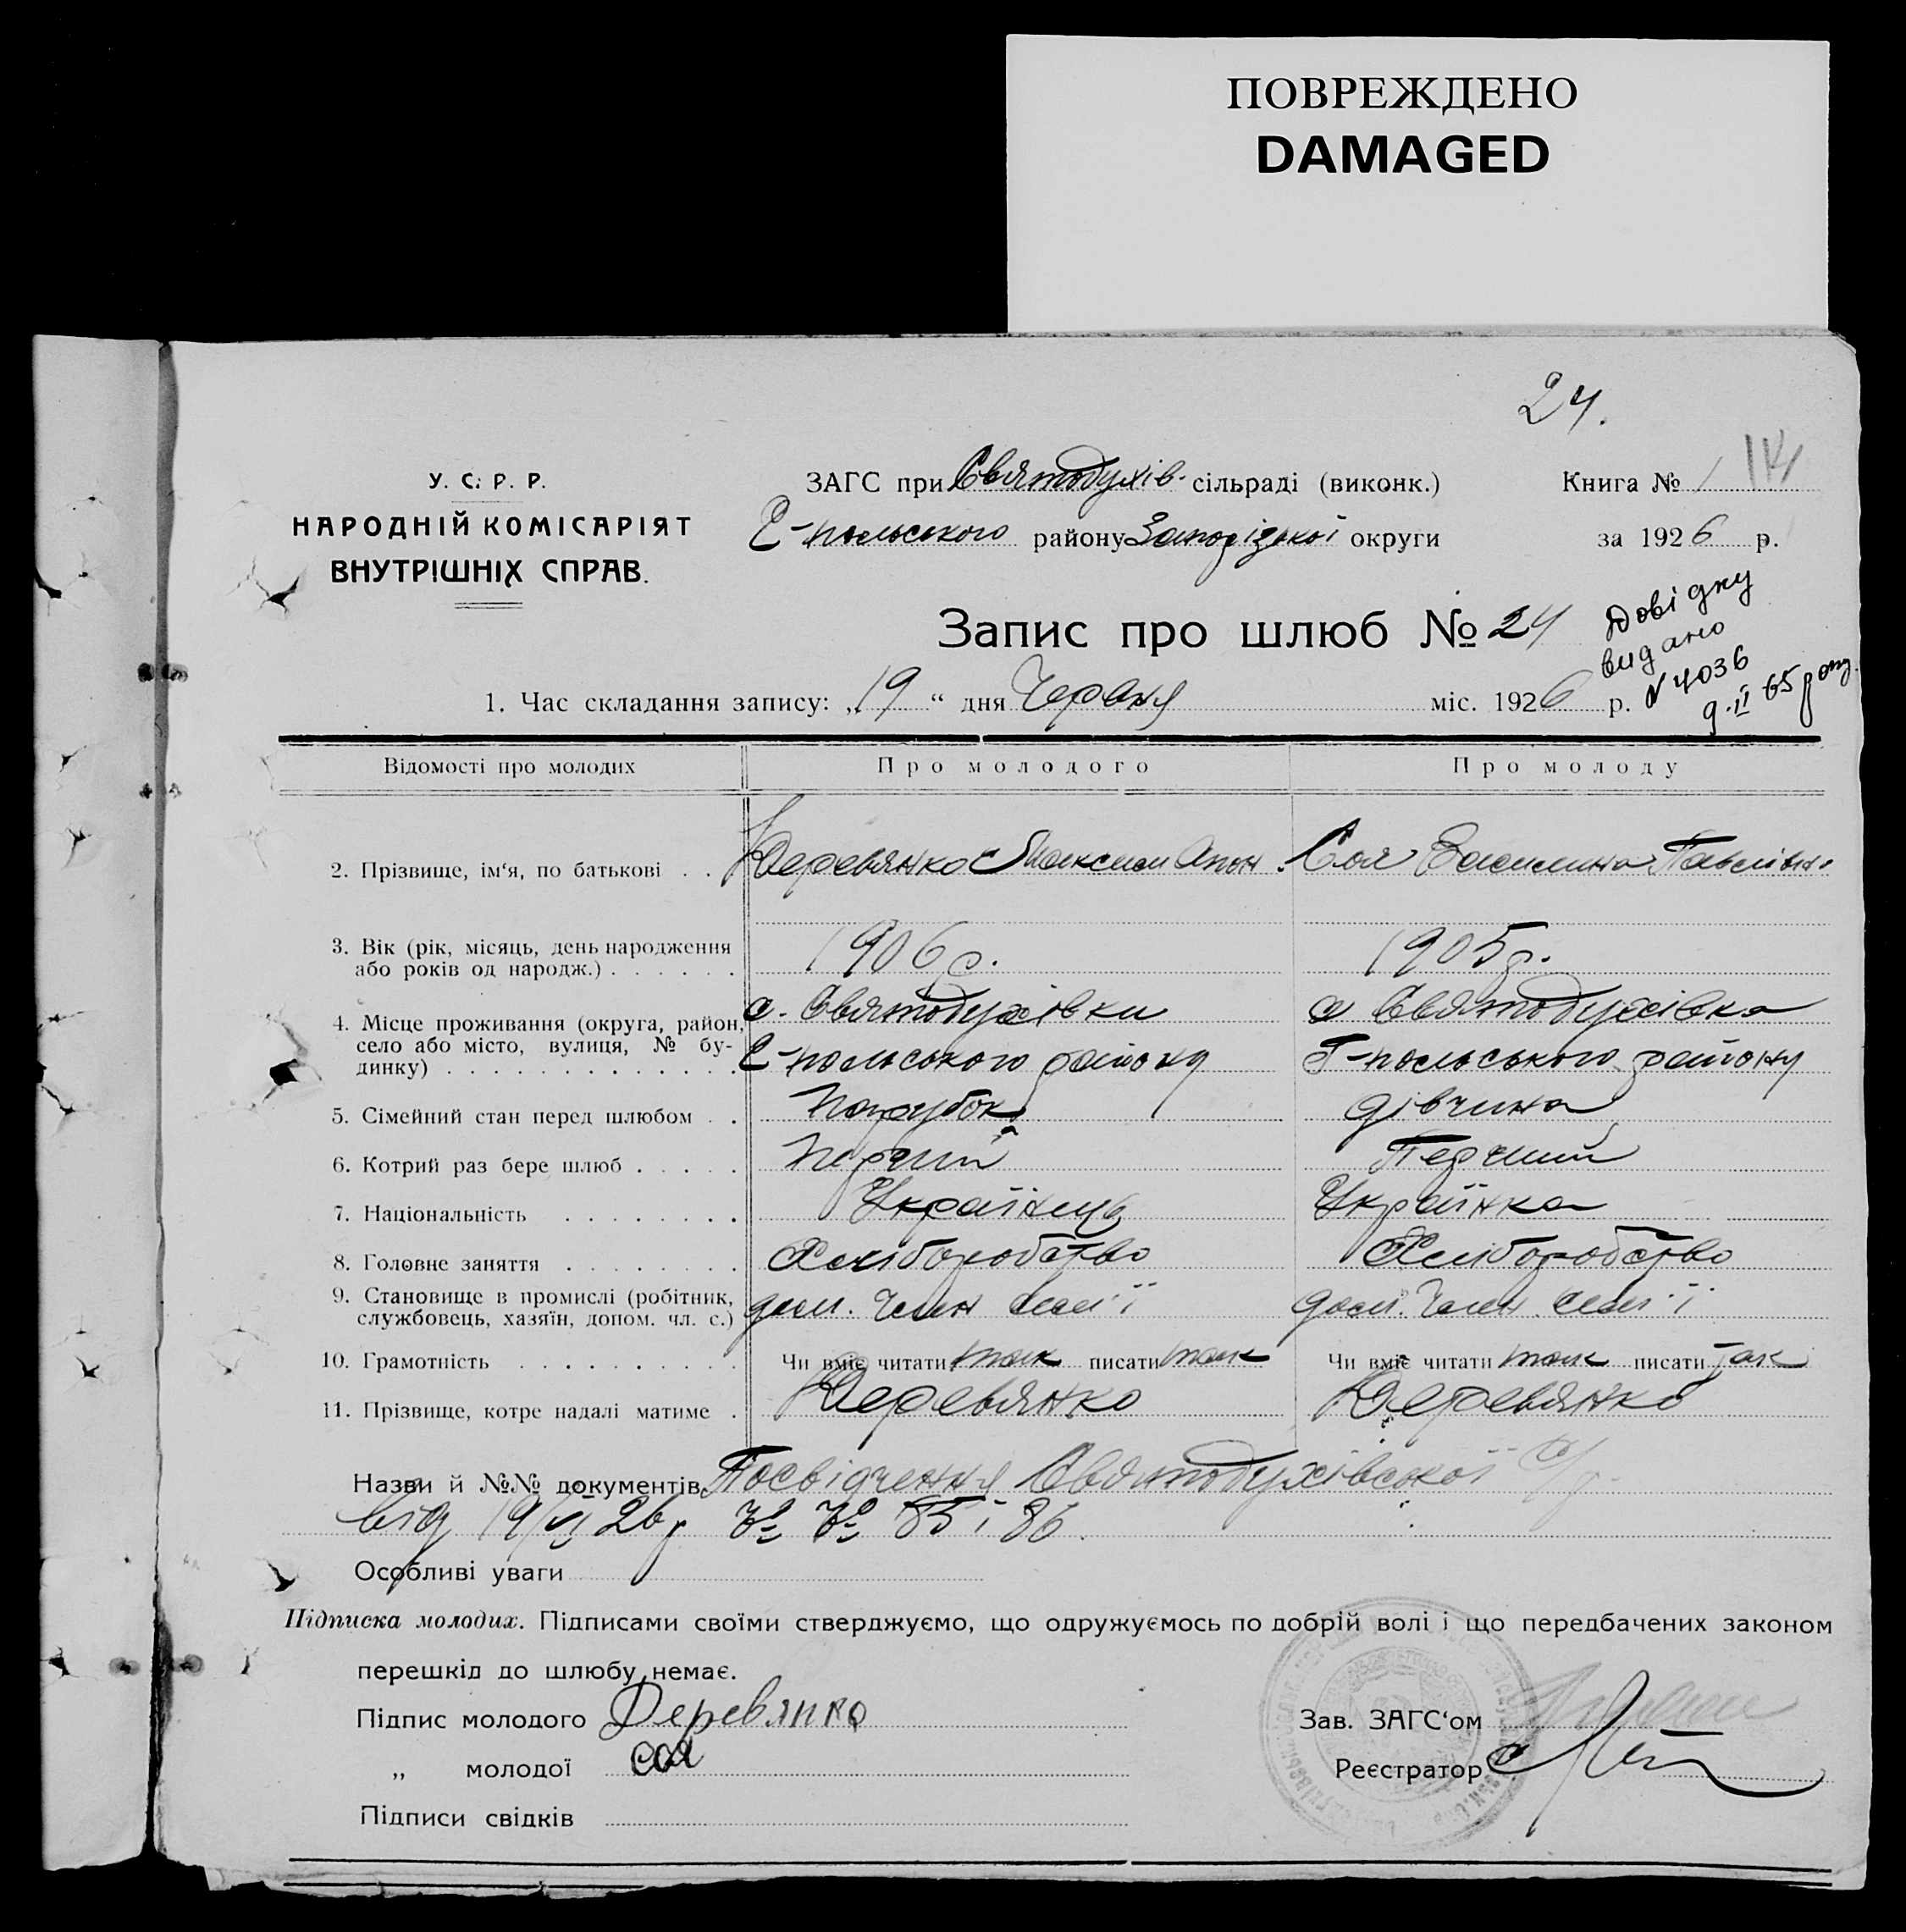 ПОВРЕЖДЕНО
DAMAGED
24.
У. С. Р. Р.
НАРОДНІЙ КОМІСАРІЯТ
ВНУТРІШНІХ СПРАВ.
ЗАГС при Святодухів. сільраді (виконк.)
Є-польського району Запорізької округи
Книга № 1
за 1926 р.
Запис про шлюб № 24
Довідку
видано
N 4036
9.II 65
1. Час складання запису: „19“ дня Червня міс. 1926 р.
Відомості про молодих Про молодого Про молоду
2. Прізвище, ім‘я, по батькові . . Деревянко Максим Соя Василина Павлівн.
3. Вік (рік, місяць, день народження 1906 р. 1905 р.
або років од народж.) . . . . . .
4. Місце проживання (округа, район, с. Святодухівки с Святодухівка
село або місто, вулиця, № бу- Є-польського району польського району
динку) . . . . . . . . . . . . .
5. Сімейний стан перед шлюбом . . Парубок дівчина
6. Котрий раз бере шлюб . . . . . Перший Перший
7. Національність . . . . . . . . Українець Українка
8. Головне заняття . . . . . . . . Хліборобство Хліборобство
9. Становище в промислі (робітник, доп. член сем'ї доп. член сем'ї
службовець, хазяїн, допом. чл. с.)
10. Грамотність . . . . . . . . . . Чи вміє читати так писати так Чи вміє читати так писати так
11. Прізвище, котре надалі матиме . Деревянко Деревянко
Назви й №№ документів Посвідчення Святодухівської с/р
від 19/VI 26 р № № 85 і 86.
Особливі уваги
Підписка молодих. Підписами своїми стверджуємо, що одружуємось по добрій волі і що передбачених законом
перешкід до шлюбу немає.
Підпис молодого Деревянко
„ молодої соя
Підписи свідків
Зав. ЗАГС‘ом
Реєстратор